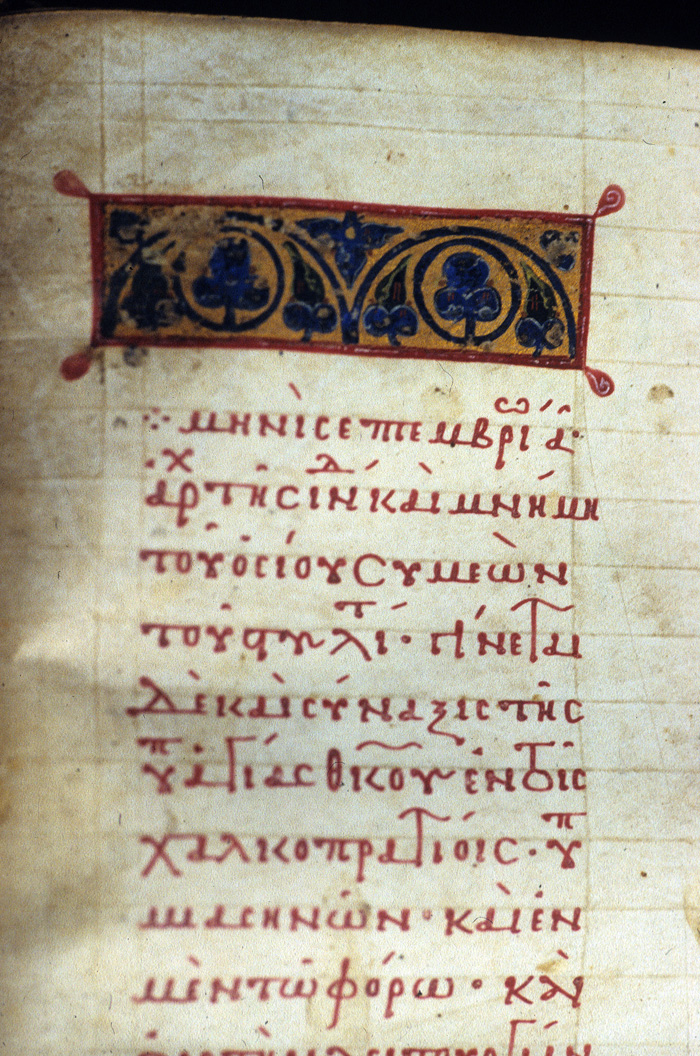 μηνὶ σεπτεμβρίω ά·
ἀρχ τῆς ἰνδ καὶ μνήμη
τοῦ ὁσίου Συμεὼν
τοῦ στυλίτ· γίνεται
δὲ καὶ σύναξις τῆς
ὑπ ἁγίας θκου ἐν τοῖς
χαλκοπρατίοις· ὑπ
μασηνῶν· καὶ ἐν
μὲν τῶ φόρω· καὶ